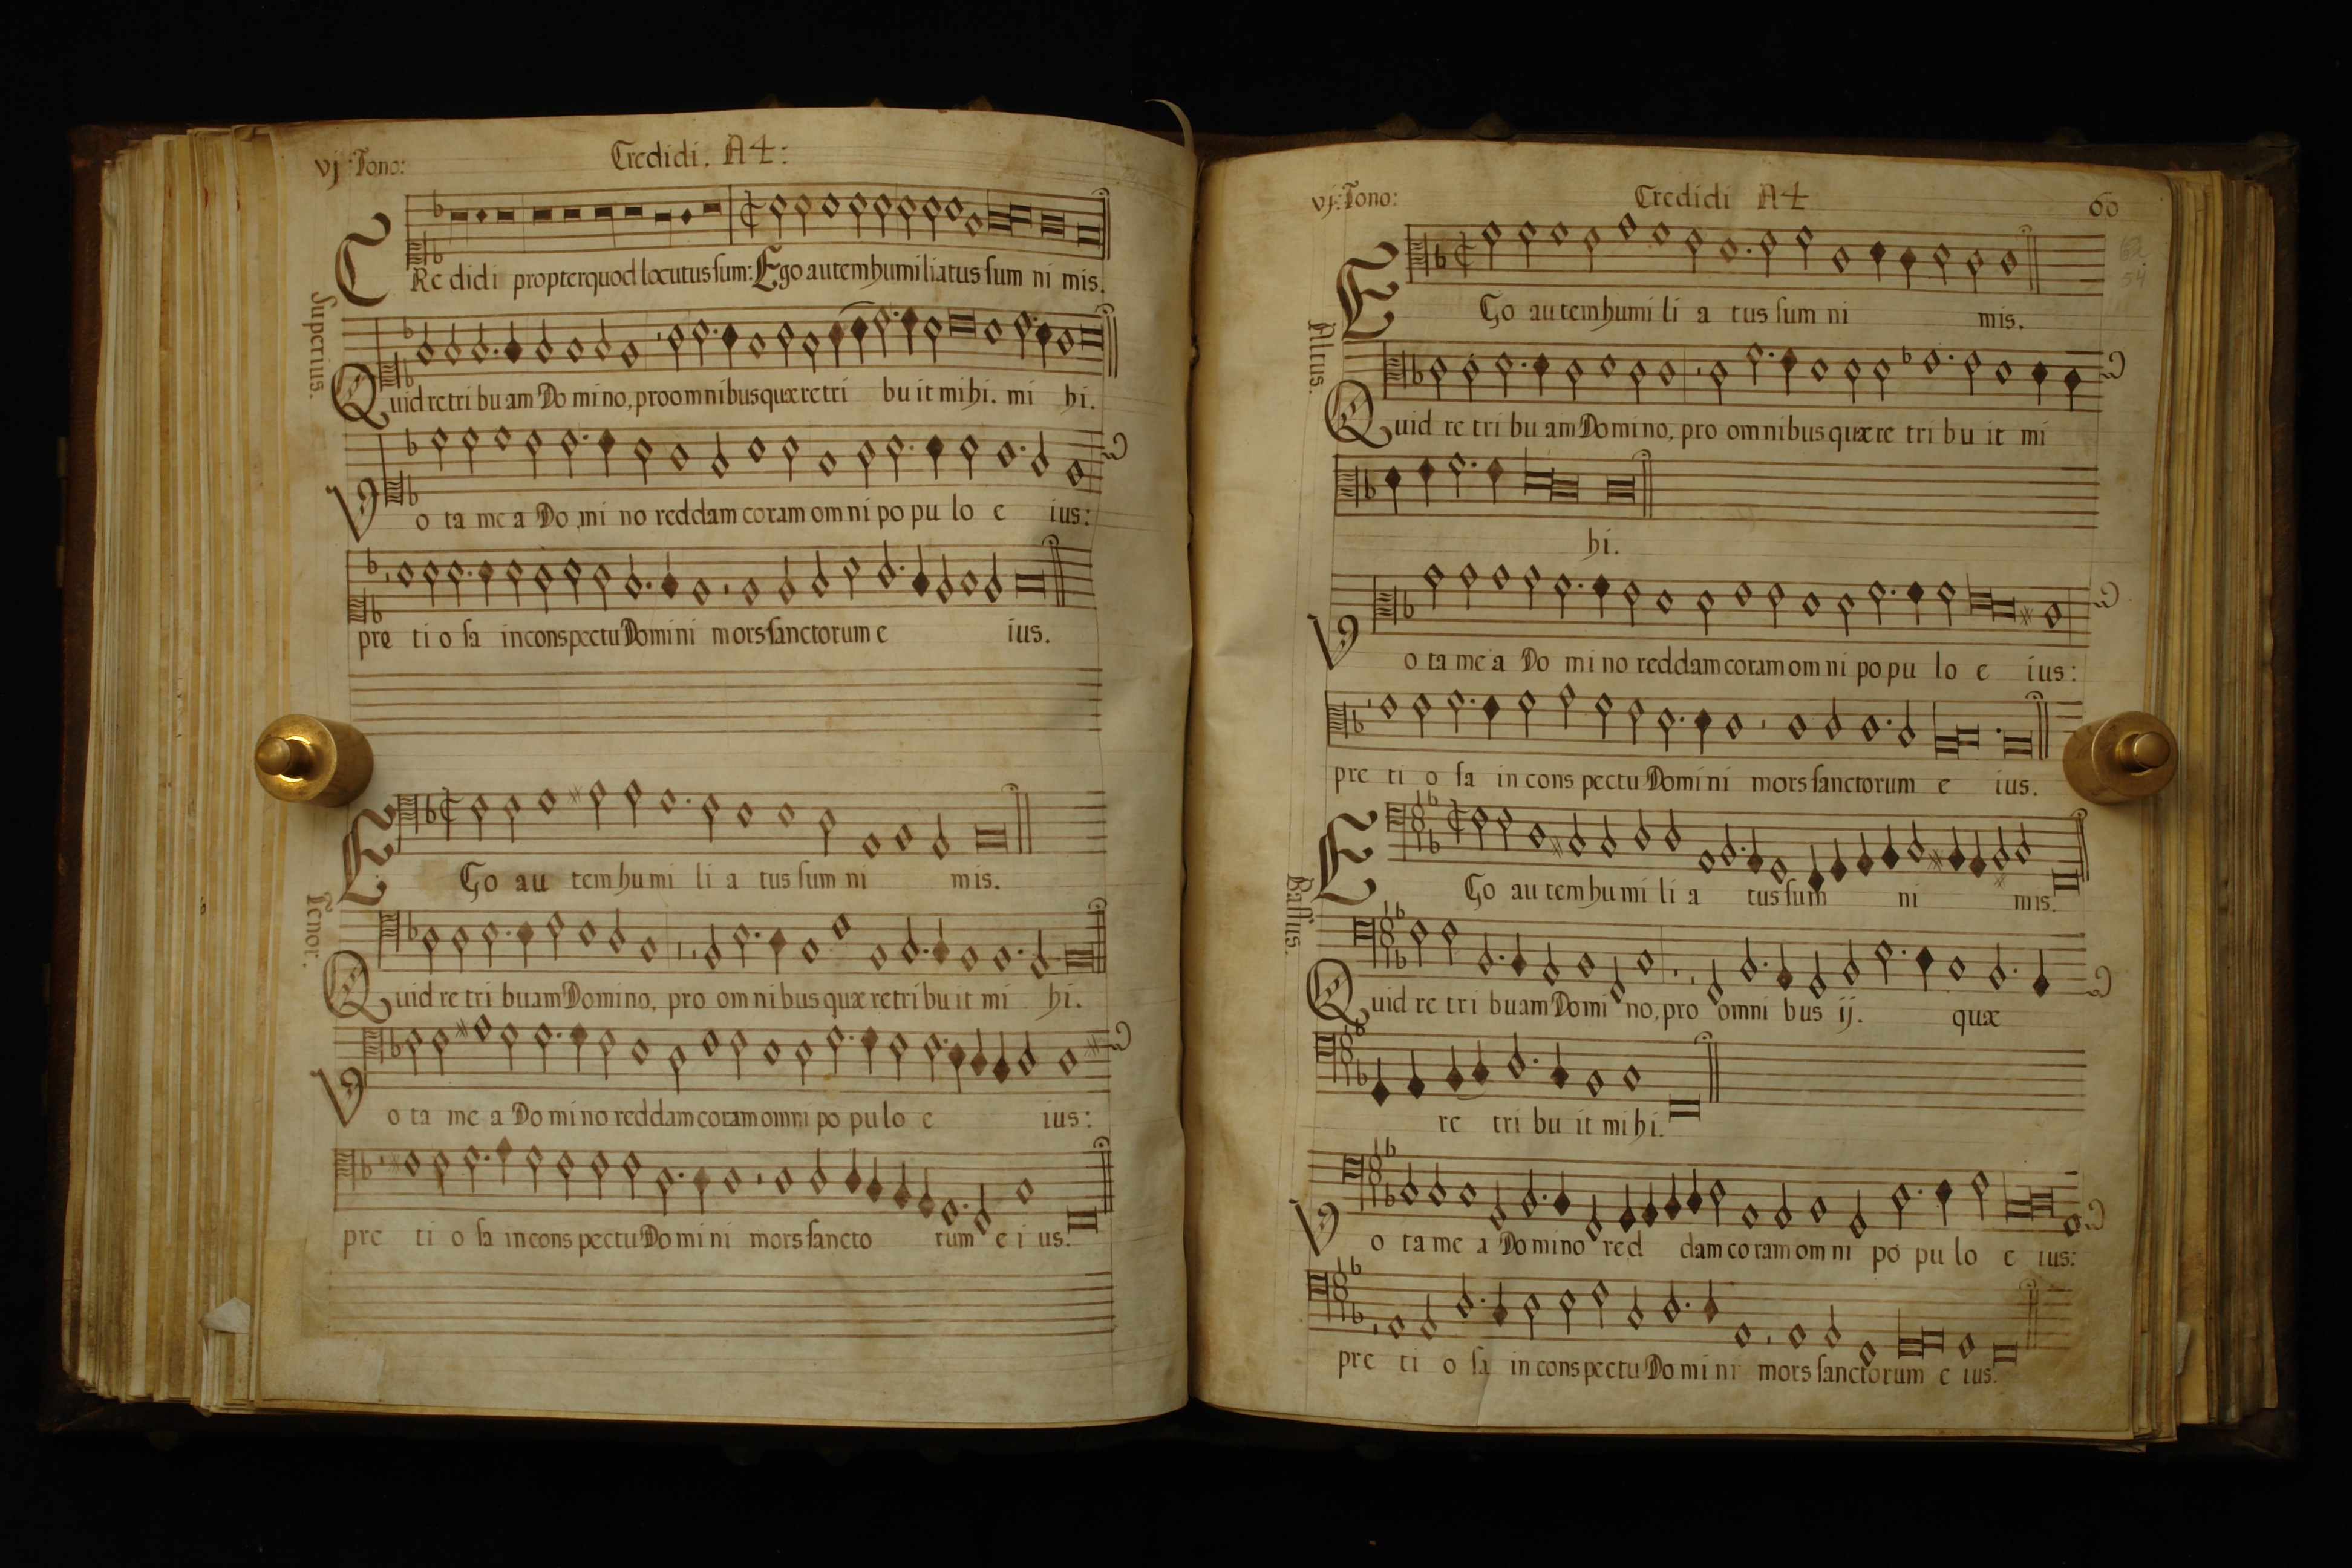 vj Tono:
Credidi. A4:
Superius.
CRe didi propter quod locutus sum: Ego autem humiliatus sum ni mis.
Quid retri bu am Do mi no, pro omnibus quæ retri bu it mihi. mi hi.
Vo ta me a Do mi no reddam coram om ni po pu lo e ius:
pre ti o sa in conspectu Domini mors sanctorum e ius.
Tenor.
EGo au tem hu mi li a tus sum ni mis.
Quid re tri buam Domino, pro om ni bus quæ retri bu it mi hi.
Vo ta me a Do mi no reddam coram omni po pu lo e ius:
pre ti o sa in cons pectu Do mi ni mors sancto rum e i us.
vj: Tono:
Credidi A4
60
62
54
Altus.
EGo au tem humi li a tus sum ni mis.
Quid re tri bu am Domino, pro omnibus quæ re tri bu it mi
hi.
Vo ta me a Do mi no reddam coram om ni po pu lo e ius:
pre ti o sa in cons pectu Domi ni mors sanctorum e ius.
Bassus.
EGo au tem hu mi li a tus sum ni mis.
Quid re tri buam Domi no, pro omni bus ij. quæ
re tri bu it mi hi.
Vo ta me a Domino red dam co ram om ni po pu lo e ius:
pre ti o sa in cons pectu Do mi ni mors sanctorum e ius.